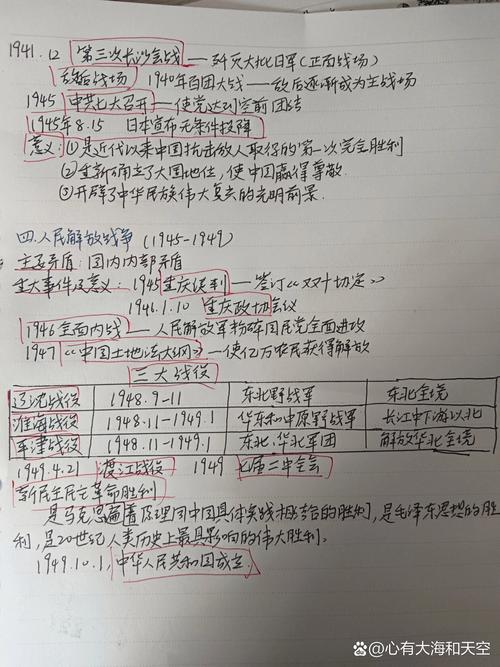 1941.12 第三次长沙会战——歼灭大批日军(正面战场)
敌后战场 1940年百团大战——敌后逐渐成为主战场
1945 中共七大召开——使党达到空前团结
1945年8.15 日本宣布无条件投降
意义:①是近代以来中国抗击敌人取得的第一次完全胜利
②重新确立了大国地位,使中国赢得尊敬
③开辟了中华民族伟大复兴的光明前景.
四.人民解放战争 (1945-1949)
主要矛盾:国内内部矛盾
重大事件及意义:1945重庆谈判——签订《双十协定》
1946.1.10 重庆政协会议
1946全面内战——人民解放军粉碎国民党全面进攻
1947《中国土地法大纲》——使亿万农民获得解放
三大战役
辽沈战役 1948.9-11 东北野战军 东北全境
淮海战役 1948.11-1949.1 华东和中原野战军 长江中下游以北
平津战役 1948.11-1949.1 东北.华北军团 解放华北全境
1949.4.21 渡江战役 1949 七届二中全会
新民主主义革命胜利
是马克思遍着原理同中国具体实践相结合的胜利,是毛泽东思想的胜
利,是20世纪人类历史上最具影响的伟大胜利.
1949.10.1,中华人民共和国成立.
@心有大海和天空